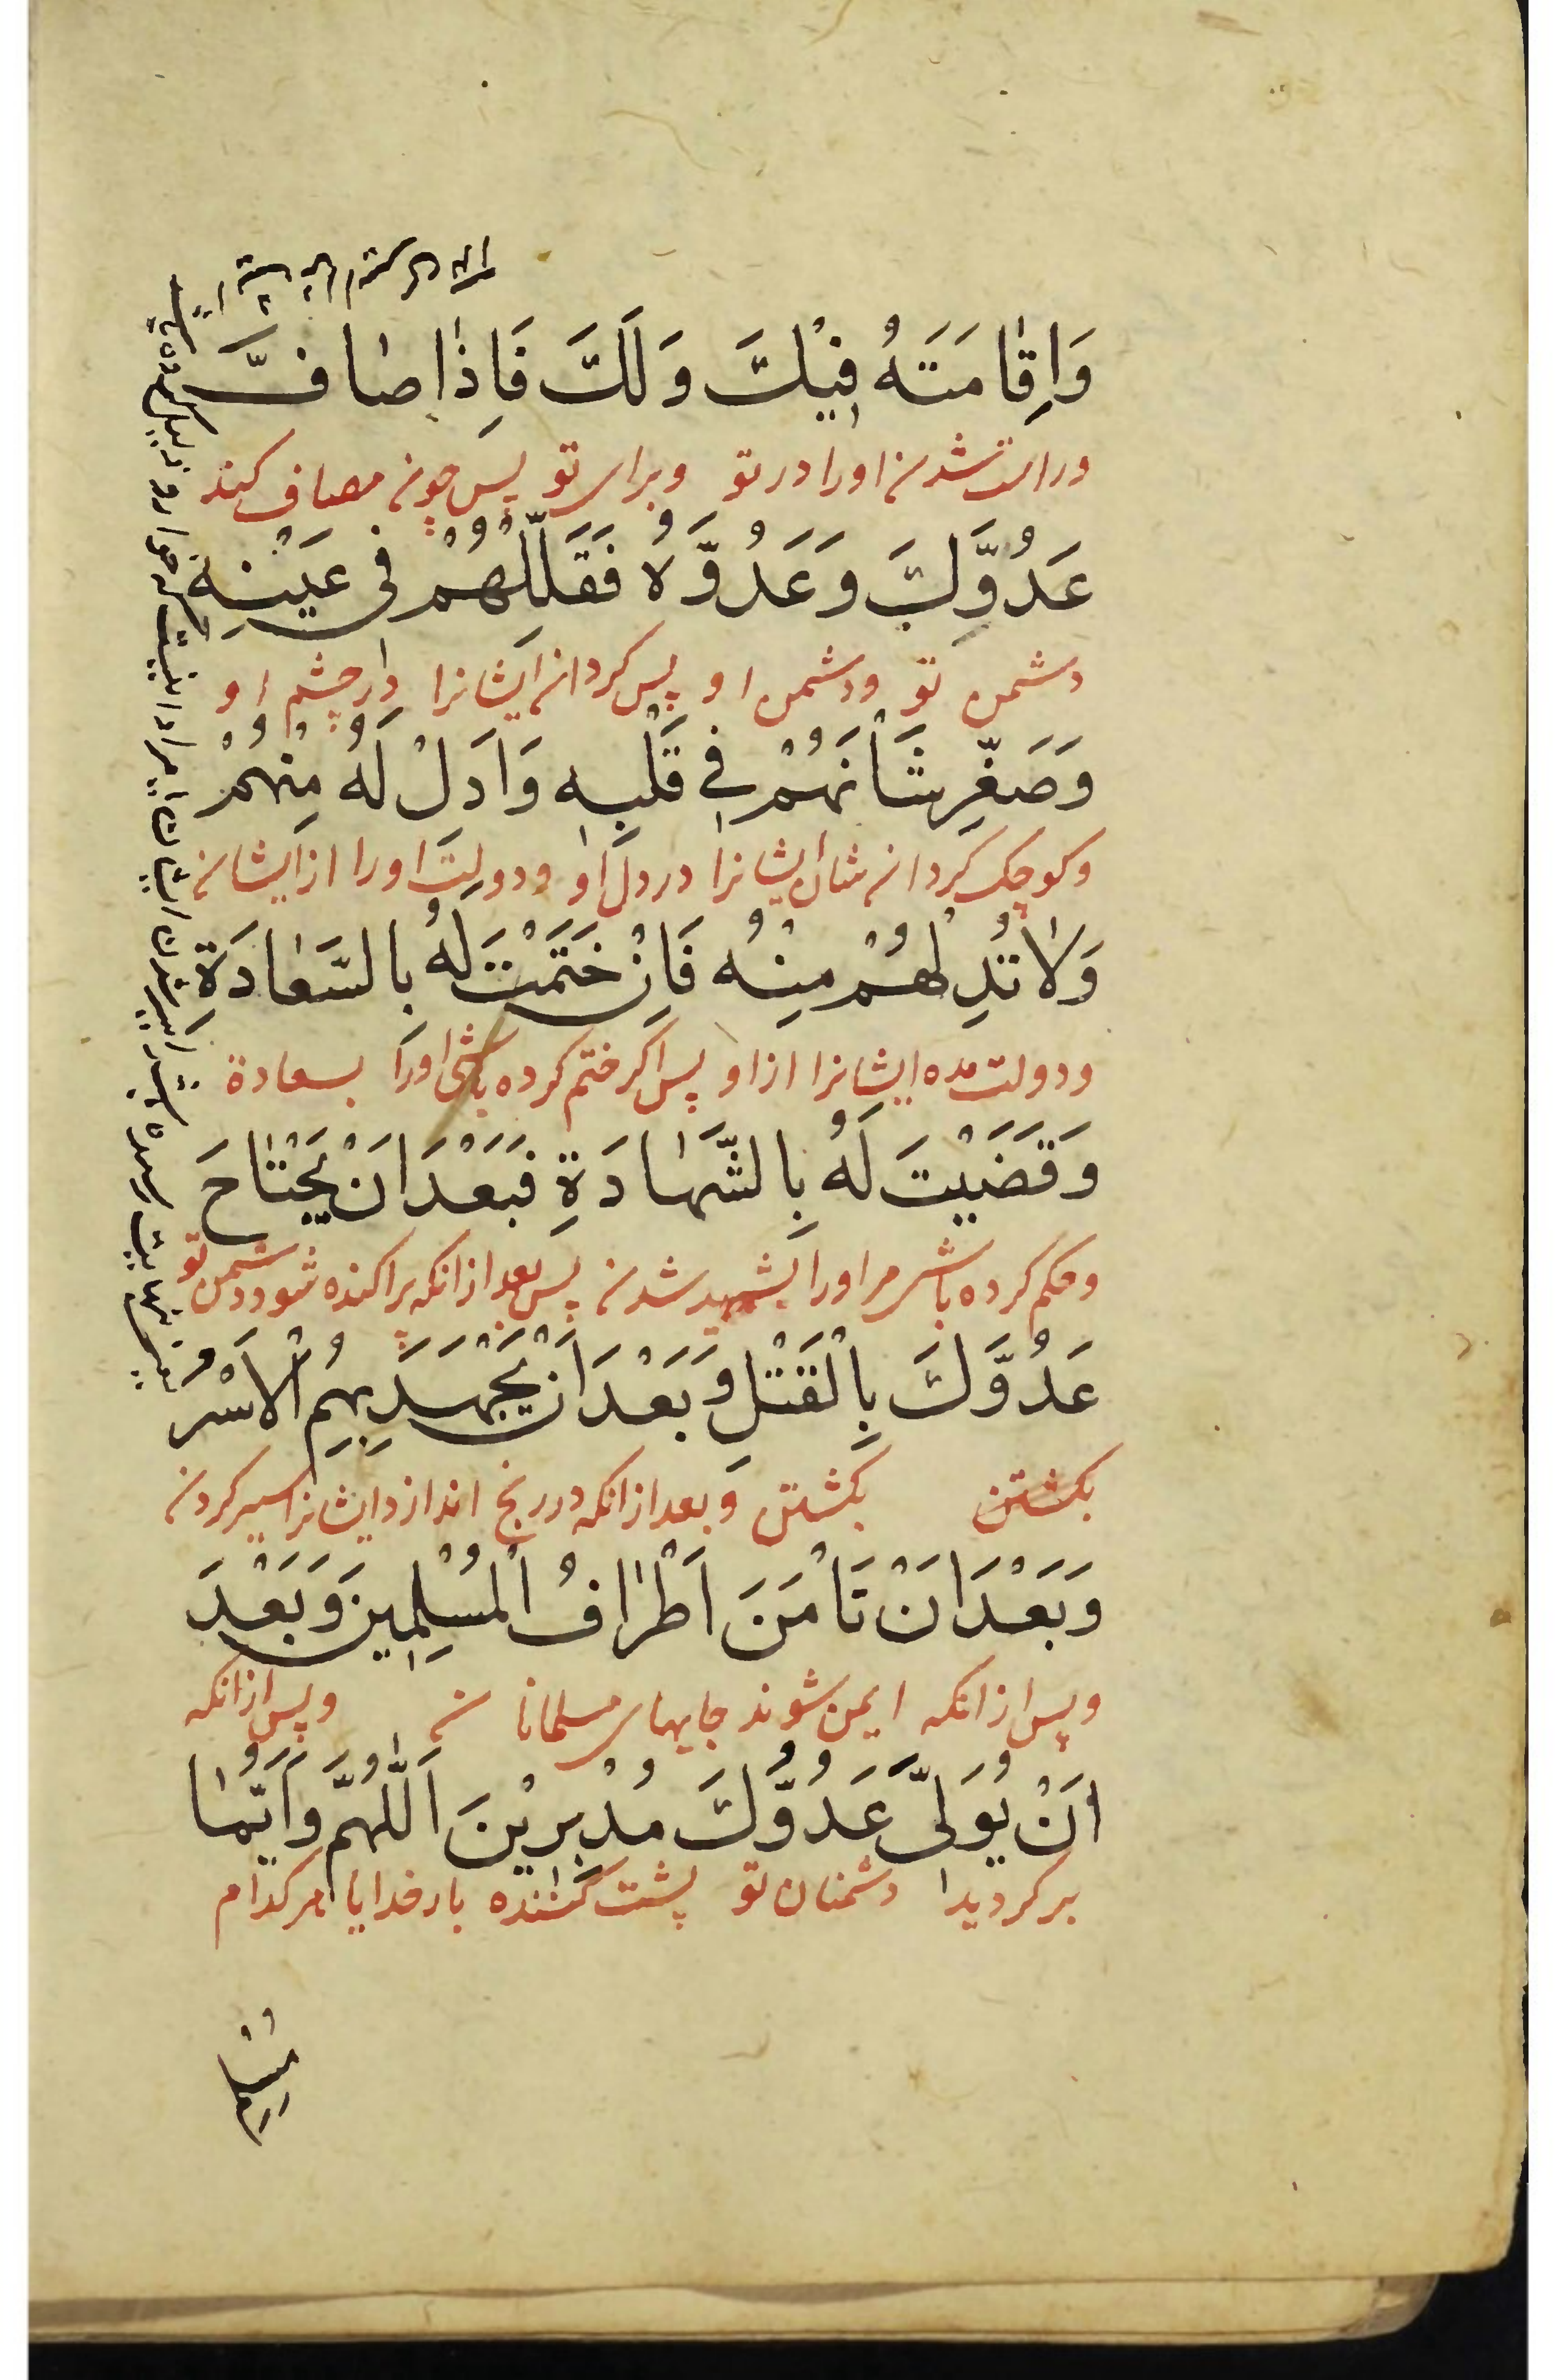 وَاِقٰامَتَهُ فِيْكَ وَلَكَ فَاِذٰا صٰافَّ
وراست شدن اورا در تو وبرای تو پس چون مصاف کند
عَدُوَّكَ وَعَدُوَّهُ فَقَلِّلْهُمْ فِي عَيْنِهِ
دشمن تو ودشمن او پس کردان ایشانرا در چشم او
وَصَغِّرْ شَأْنَهُمْ فِي قَلْبِهِ وَاَدِلْ لَهُ مِنْهُمْ
وکوچک کردان شان ایشانرا در دل او ودولت اورا از ایشان
وَلاٰ تُدِلْهُمْ مِنْهُ فَاِنْ خَتَمْتَ لَهُ بِالسَّعٰادَةِ
ودولت مده ایشانرا از او پس اکر ختم کرده باشی اورا بسعادة
وَقَضَيْتَ لَهُ بِالشَّهٰادَةِ فَبَعْدَ اَنْ يَجْتٰاحَ
وحکم کرده باشی مر اورا بشهید شدن پس بعد از انکه پراکنده شود دشمن تو
عَدُوَّكَ بِالْقَتْلِ وَبَعْدَ اَنْ يَجْهَدَ بِهِمُ الْاَسْرُ
بکشتن بکشتن وبعد از انکه در رنج اندازد ایشانرا اسیر کردن
وَبَعْدَ اَنْ تَأْمَنَ اَطْرٰافُ الْمُسْلِمِينَ وَبَعْدَ
وپس از انکه ایمن شوند جایهای مسلمانان وپس از انکه
اَنْ يُوَلِّيَ عَدُوُّكَ مُدْبِرِيْنَ اَللّٰهُمَّ وَاَيُّمٰا
برکردیدا دشمنان تو پشت کننده بار خدایا هر کدام